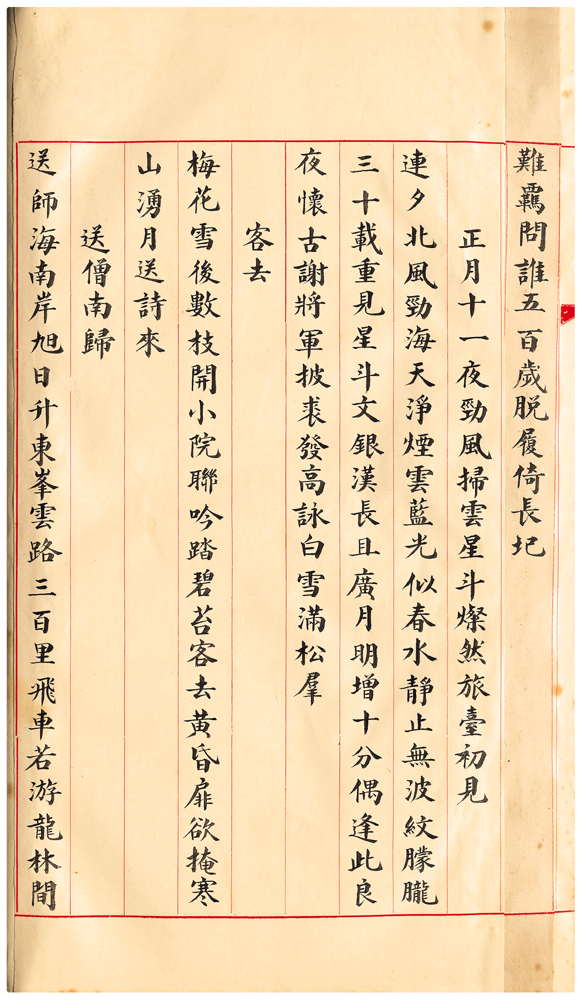 難羈問誰五百歲脱履倚長圯
正月十一夜勁風掃雲星斗燦然旅臺初見
連夕北風勁海天淨煙雲藍光似春水靜止無波紋朦朧
三十載重見星斗文銀漢長且廣月明增十分偶逢此良
夜懷古謝將軍披裘發高詠白雪滿松羣
客去
梅花雪後數枝開小院聯吟踏碧苔客去黃昏扉欲掩寒
山湧月送詩來
送僧南歸
送師海南岸旭日升東峯雲路三百里飛車若游龍林間